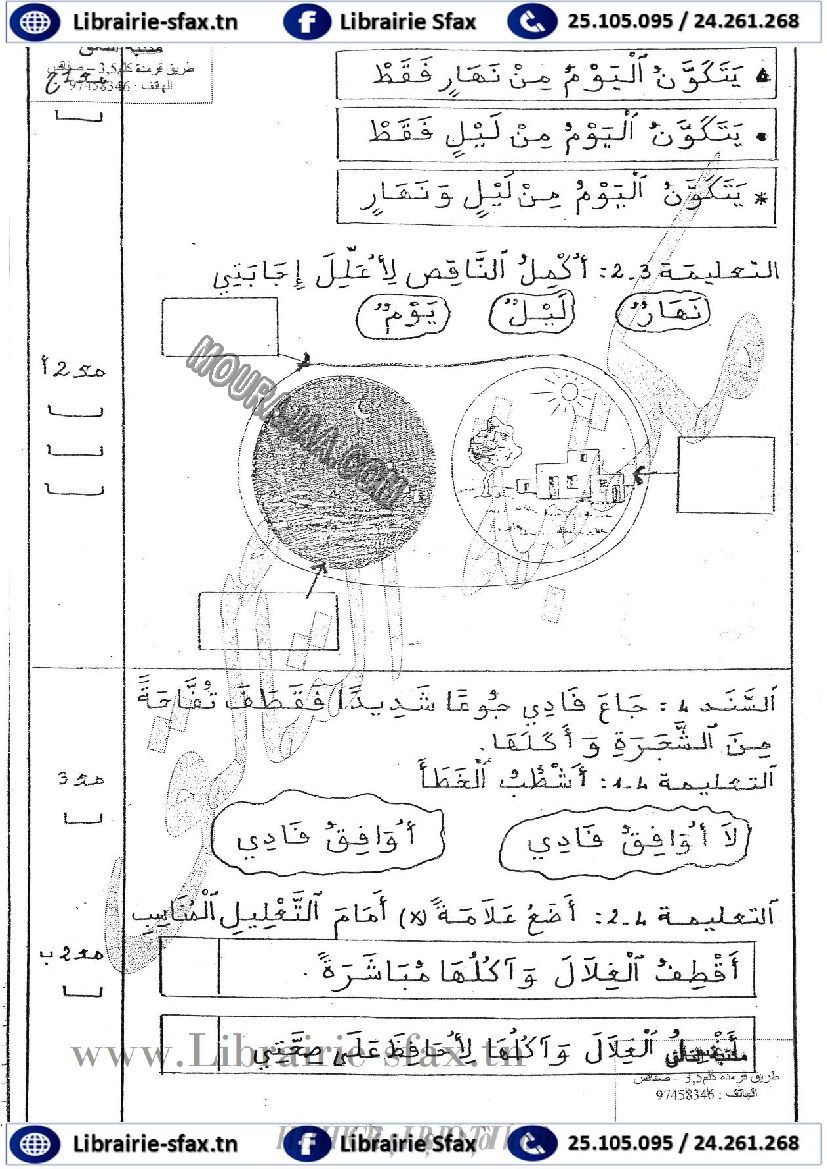 Librairie-sfax.tn Librairie Sfax 25.105.095 / 24.261.268
طريق قرمدة كلم 3,5 – صفاقس
الهاتف : 97458346
• يَتَكَوَّنُ اَلْيَوْمُ مِنْ نَهَارٍ فَقَطْ
• يَتَكَوَّنُ اَلْيَوْمُ مِنْ لَيْلٍ فَقَطْ
* يَتَكَوَّنُ اَلْيَوْمُ مِنْ لَيْلٍ وَنَهَارٍ
التعليمة 2.3: أُكْمِلُ اَلنَّاقِصَ لِأُعَلِّلَ إِجَابَتِي
نَهَارٌ لَيْلٌ يَوْمٌ
مع 2 أ
MOURAJAA.COM
اَلسَّنَد 4: جَاعَ فَادِي جُوعًا شَدِيدًا فَقَطَفَ تُفَّاحَةً
مِنَ اَلشَّجَرَةِ وَ أَكَلَهَا.
التعليمة 1.4: أَشْطُبُ اَلْخَطَأَ
مع 3
لَا أُوَافِقُ فَادِي أُوَافِقُ فَادِي
التعليمة 2.4: أَضَعُ عَلَامَةً (x) أَمَامَ اَلتَّعْلِيلِ اَلْمُنَاسِبِ
مع 2 ب
أَقْطِفُ اَلْغِلَالَ وَ آكُلُهَا مُبَاشَرَةً.
أَغْسِلُ اَلْغِلَالَ وَ آكُلُهَا لِأُحَافِظَ عَلَى صِحَّتِي
www.Librairie-sfax.tn
طريق قرمدة كلم 3,5 – صفاقس
الهاتف : 97458346
Librairie-sfax.tn Librairie Sfax 25.105.095 / 24.261.268